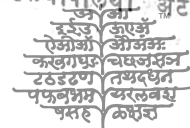 अ आ
इ ई उ ऊ ए ॲ
ऐ ओ ऑ औ अं अः
क ख ग घ ङ च छ ज झ ञ
ट ठ ड ढ ण त थ द ध न
प फ ब भ म य र ल व श
ष स ह ळ क्ष ज्ञ